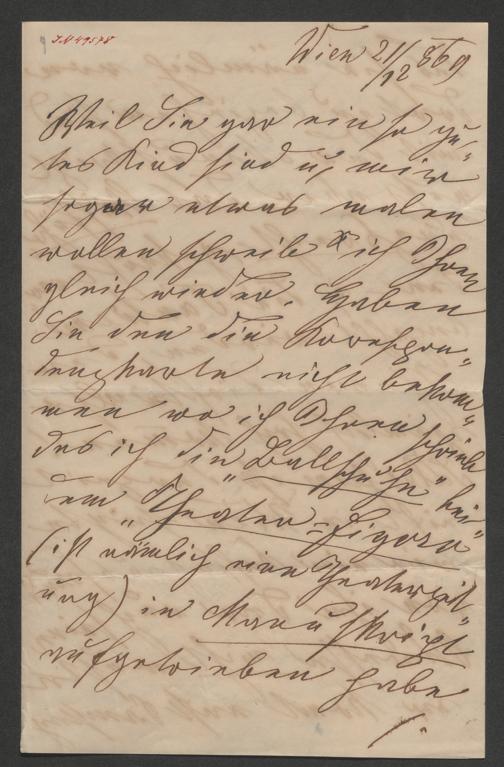 J.N 49578
Wien 21/12 869
Weil Sie gar ein so gu„
tes Kind sind u, mir
sogar etwas malen
wollen schreibe ich Ihnen
gleich wieder. Haben
Sie den die Korrespon„
denzkarte nicht bekom„
men wo ich Ihnen schrieb
das ich die "Ballschuhe" bei
dem "Theater-Figaro"
(ist nämlich eine Theaterzeit„
ung) in Manuskript
aufgetrieben habe
/.